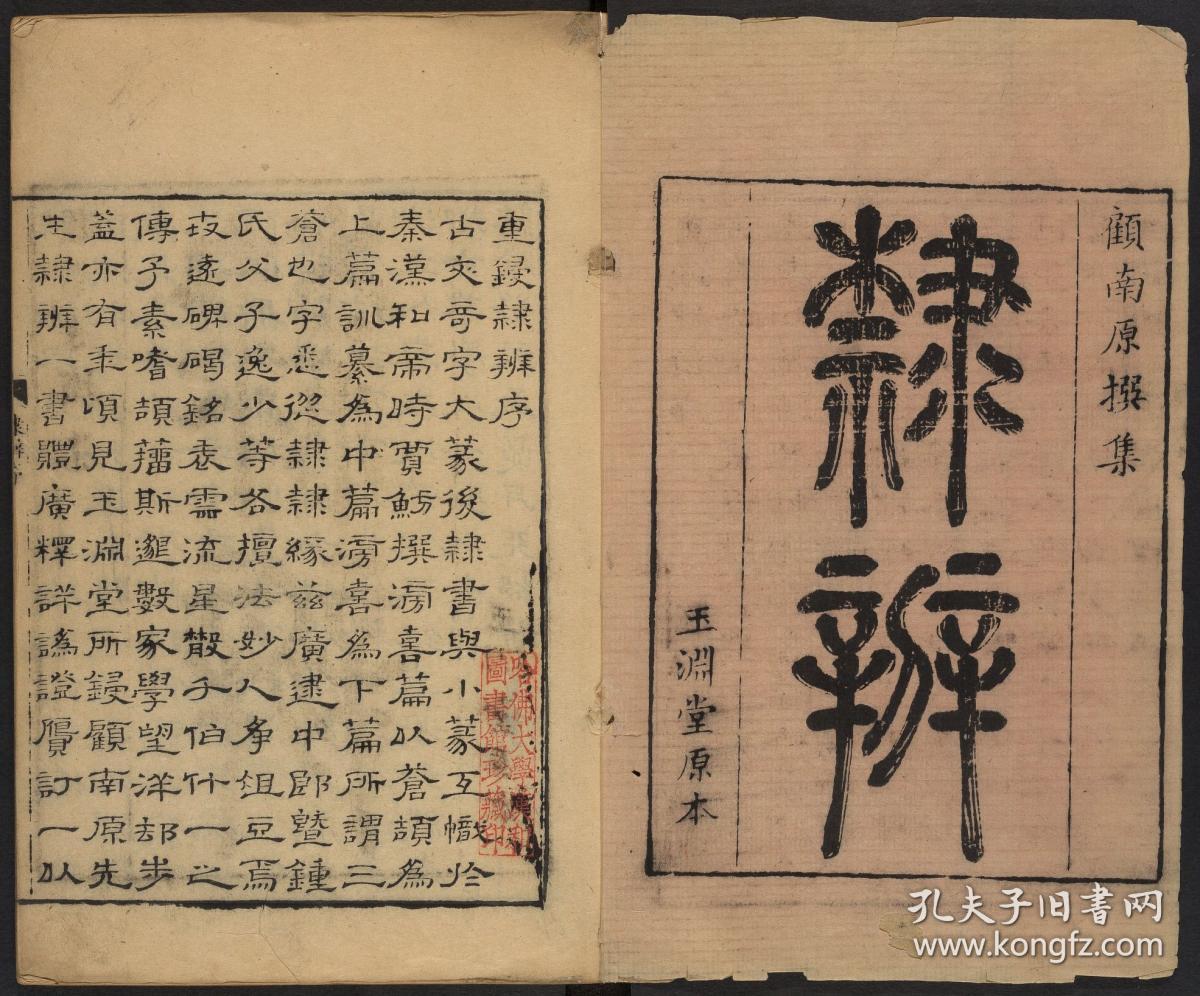 顧南原撰集
隸辨
玉淵堂原本
重鋟隸辨序
古文奇字大篆後隸書與小篆互幟於
秦漢和帝時賈魴撰滂喜篇以蒼頡為
上篇訓纂為中篇滂喜為下篇所謂三
蒼也字悉從隸隸緣茲廣逮中郎暨鍾
氏父子逸少等各擅法妙人爭俎豆焉
遠碑碣銘表流星散千伯什一之
傳予素嗜頡籀斯邈數家學望洋却步
蓋亦有年頃見玉淵堂所鋟顧南原先
生隸辨一書體廣釋詳譌證贗訂一以
隸辨序
哈佛大學漢和
圖書館珍藏印
孔夫子旧书网
www.kongfz.com